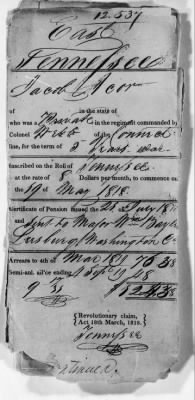 12.537
East
Tennessee
Jacob Acor
of in the state of
who was a Private in the regiment commanded by
Colonel Webb of the Connec
line, for the term of 3 Years. war
Inscribed on the Roll of Tennissee
at the rate of 8 Dollars per month, to commence on
the 19 of May 1818.
Certificate of Pension issued the of July 18
and sent to Major Wm Bayle
Washington C
Arrears to 4th of Mar 1819 76.38
Semi-anl. all'ce ending 4 Sept 19 48
$124.38
{Revolutionary claim,
Act 18th March, 1818.}
Tennissee